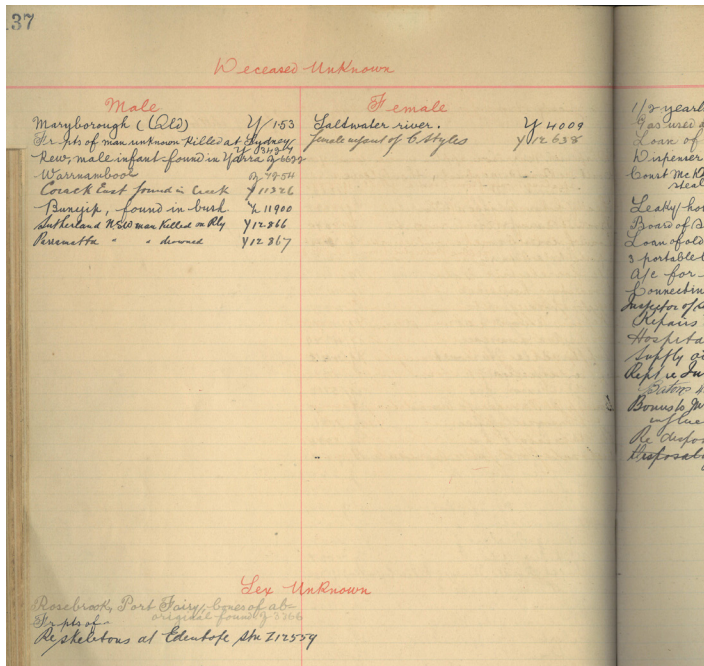 137
Deceased Unknown
Male
Maryborough (Qld) Y/153
Fr-pts of man unknown killed at Sydney
Y 3424
Kew, male infant found in Yarra
Warrnambool
Corack East found in Creek Y 11326
Bunyip, found in bush Z 11900
Sutherland NSW man killed on Rly Y12866
Parramatta " " drowned Y12867
Female
Saltwater river. Y 4009
female infant of C Styles Y12638
Sex Unknown
Rosebrook, Port Fairy, bones of ab-
original found
Fr pts of -
Re skeletons at Edenhope Stn Z12559
1/2 yearl
Gas used
Loan of
Dispenser
Court McK
steal
Leaky ho
Board of
Loan of old
3 portable
a/c for
Connectin
Inspector of
Repairs
Hospita
Supply
Rept re
Bonus to
influe
Re dispo
Disposal